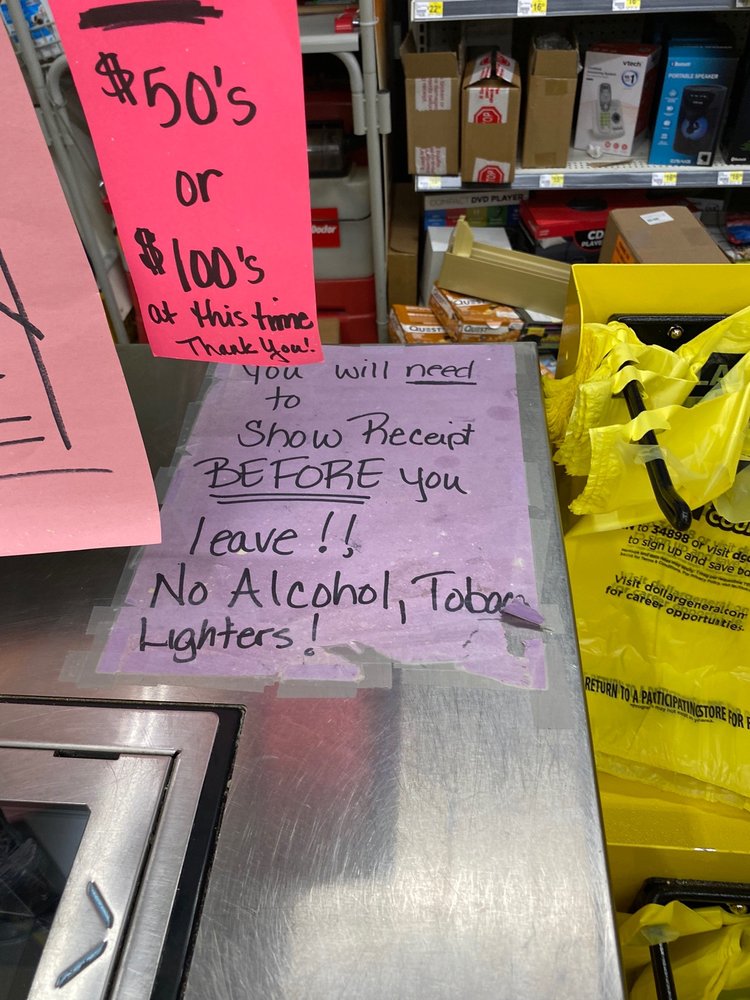 $50's
or
$100's
at this time
Thank You!
You will need
to
Show Receipt
BEFORE you
leave!!
No Alcohol,
Lighters!
vtech
PORTABLE SPEAKER
COMPACT DVD PLAYER
CD
QUEST
QUEST
to 34898 or visit
to sign up and save
Visit dollargeneral.com
for career opportunities
RETURN TO A PARTICIPATING STORE FOR